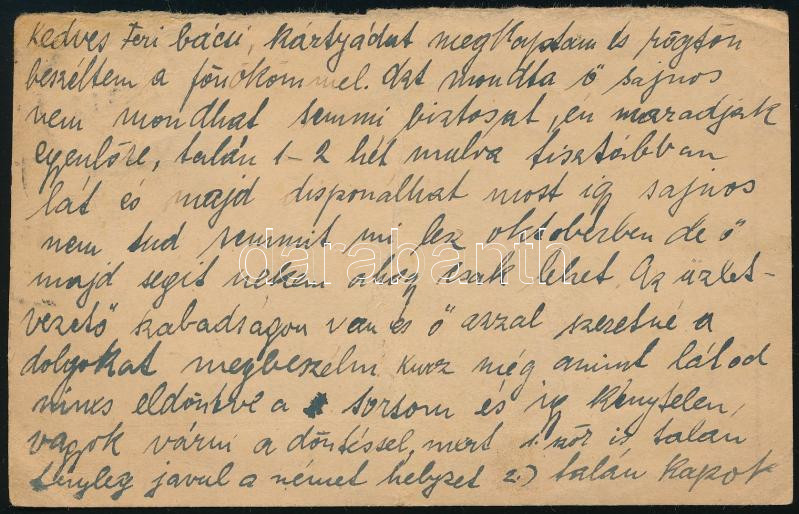 Kedves Feri bácsi, kártyádat megkaptam és rögtön
beszéltem a főnökömmel. Azt mondta ő sajnos
nem mondhat semmi biztosat, én maradjak
egyenlőre, talán 1-2 hét mulva tisztábban
lát és majd disponálhat most ig sajnos
nem tud semmit mi lesz oktoberben de ő
majd segit nekem ahogy csak lehet. Az üzlet-
vezető szabadságon van és ő azzal szeretné a
dolgokat megbeszélni még amint látod
nincs eldöntve a sorsom és ig kénytelen,
vagok várni a döntéssel, mert 1.ször is talan
tényleg javul a német helyzet 2.) talán kapok
darabanth